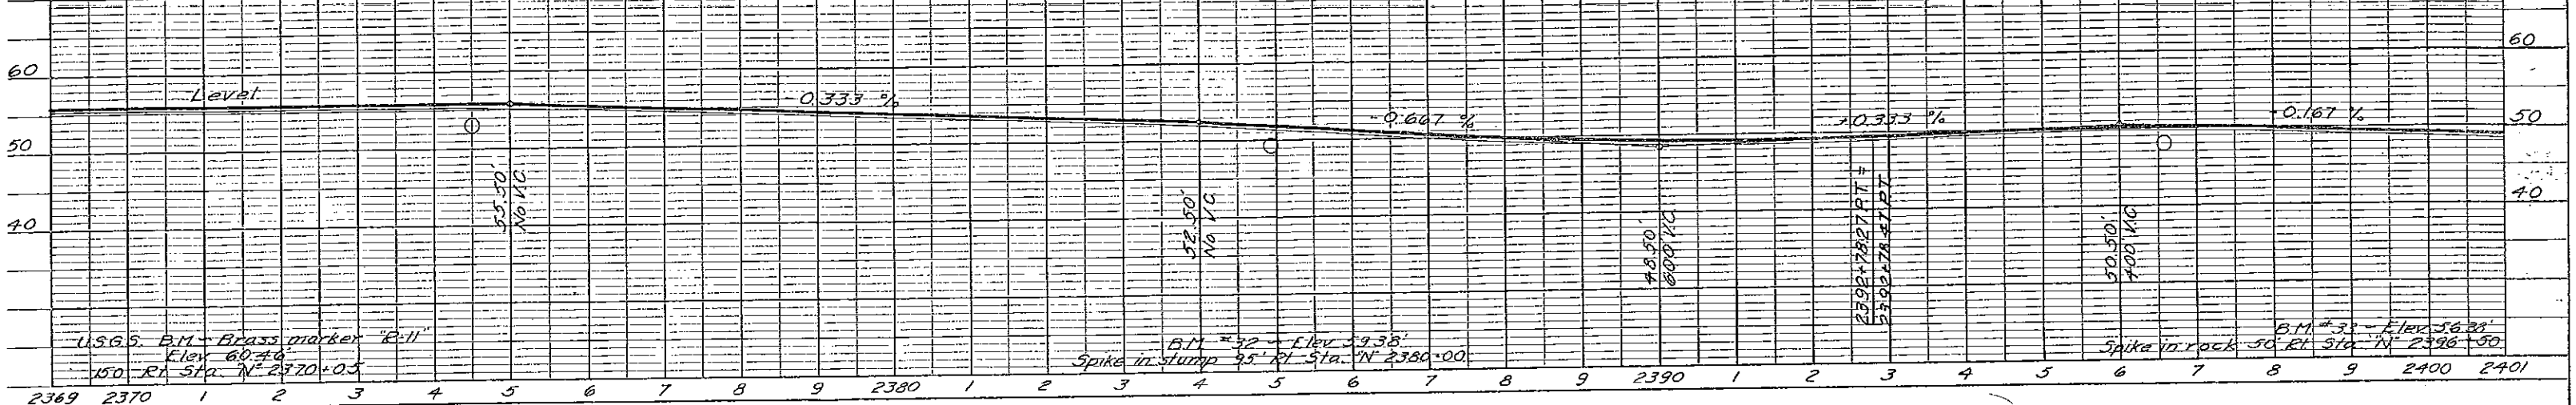 60
50
40
60
50
40
Level
- 0.333 %
- 0.667 %
+0.333 %
- 0.167 %
55.50'
No V.C.
52.50'
No V.C.
48.50'
600' V.C.
2392+78.27 P.T. =
2392+78.41 P.T.
50.50'
400' V.C.
U.S.G.S. B.M. - Brass marker "R-11"
Elev. 60.46'
150' Rt. Sta. "N" 2370+05
B.M. #32 - Elev. 59.38'
Spike in stump 95' Rt. Sta. "N" 2380+00
B.M. #33 - Elev. 56.38'
Spike in rock 50' Rt. Sta. "N" 2396+50
2369 2370 1 2 3 4 5 6 7 8 9 2380 1 2 3 4 5 6 7 8 9 2390 1 2 3 4 5 6 7 8 9 2400 2401